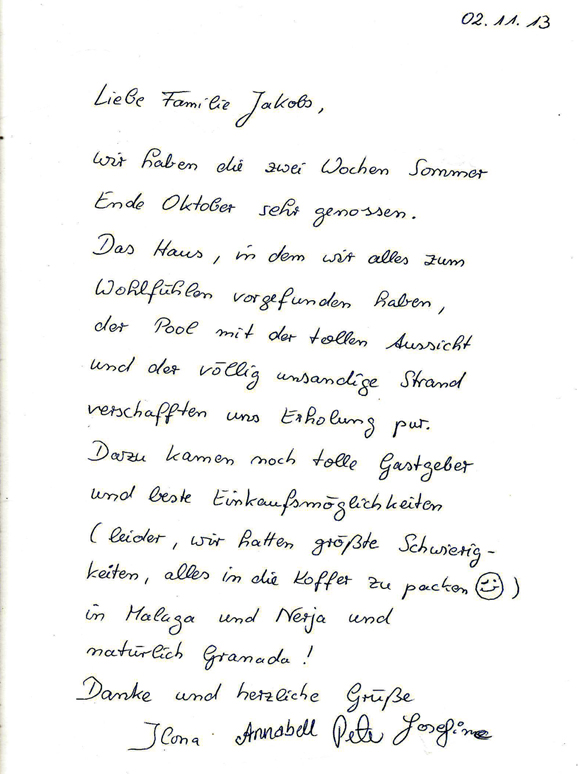 02.11.13
Liebe Familie Jakobs,
wir haben die zwei Wochen Sommer
Ende Oktober sehr genossen.
Das Haus, in dem wir alles zum
Wohlfühlen vorgefunden haben,
der Pool mit der tollen Aussicht
und der völlig unsandige Strand
verschafften uns Erholung pur.
Dazu kamen noch tolle Gastgeber
und beste Einkaufsmöglichkeiten
(leider, wir hatten größte Schwierig-
keiten, alles in die Koffer zu packen ☺)
in Malaga und Nerja und
natürlich Granada!
Danke und herzliche Grüße
Ilona Annabell Pete Josefine